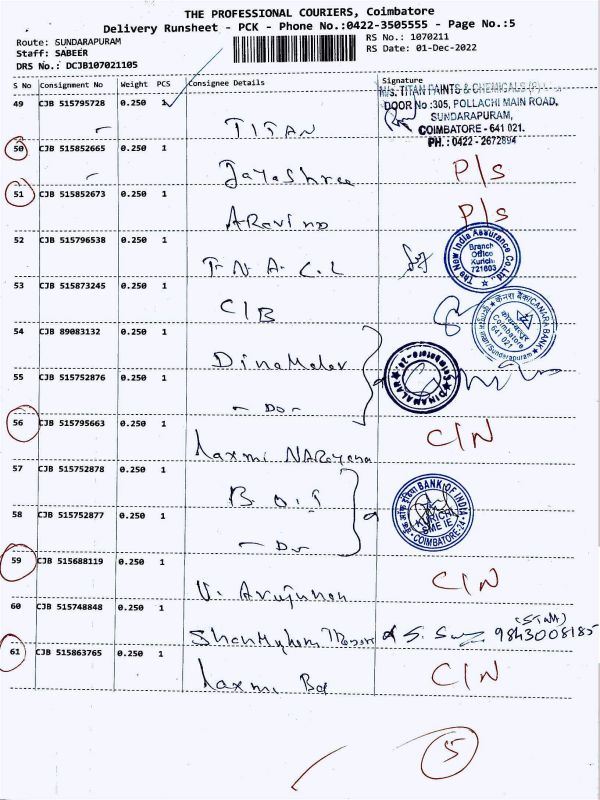 THE PROFESSIONAL COURIERS, Coimbatore
Delivery Runsheet - PCK - Phone No.:0422-3505555 - Page No.:5
Route: SUNDARAPURAM
Staff: SABEER
DRS No.: DCJB107021105
RS No.: 1070211
RS Date: 01-Dec-2022
S No Consignment No Weight PCS Consignee Details Signature
49 CJB 515795728 0.250 1
TITAN
M/s. TITAN PAINTS & CHEMICALS (P)
DOOR No :305, POLLACHI MAIN ROAD,
SUNDARAPURAM,
COIMBATORE - 641 021.
PH. : 0422 - 2672894
50 CJB 515852665 0.250 1
Jayashree P/S
51 CJB 515852673 0.250 1
ARavind P/S
52 CJB 515796538 0.250 1
T.N.A.C.L
The New India Assurance Co. Ltd
Branch
Office
Kurichi
721603
53 CJB 515873245 0.250 1
C/B
केनरा बैंक/CANARA BANK
कोयम्बत्तूर
Coimbatore
641 021
Sundarapuram
54 CJB 89083132 0.250 1
DinaMalar
DINAMALAR
Coimbatore
55 CJB 515752876 0.250 1
- Do -
56 CJB 515795663 0.250 1
Laxmi NARayana C/N
57 CJB 515752878 0.250 1
B.O.I
BANK OF INDIA
KURICHI
SME IE
COIMBATORE
58 CJB 515752877 0.250 1
- Do
59 CJB 515688119 0.250 1
V. Arujunan C/N
60 CJB 515748848 0.250 1
9843008185
61 CJB 515863765 0.250 1
Laxmi C/N
5